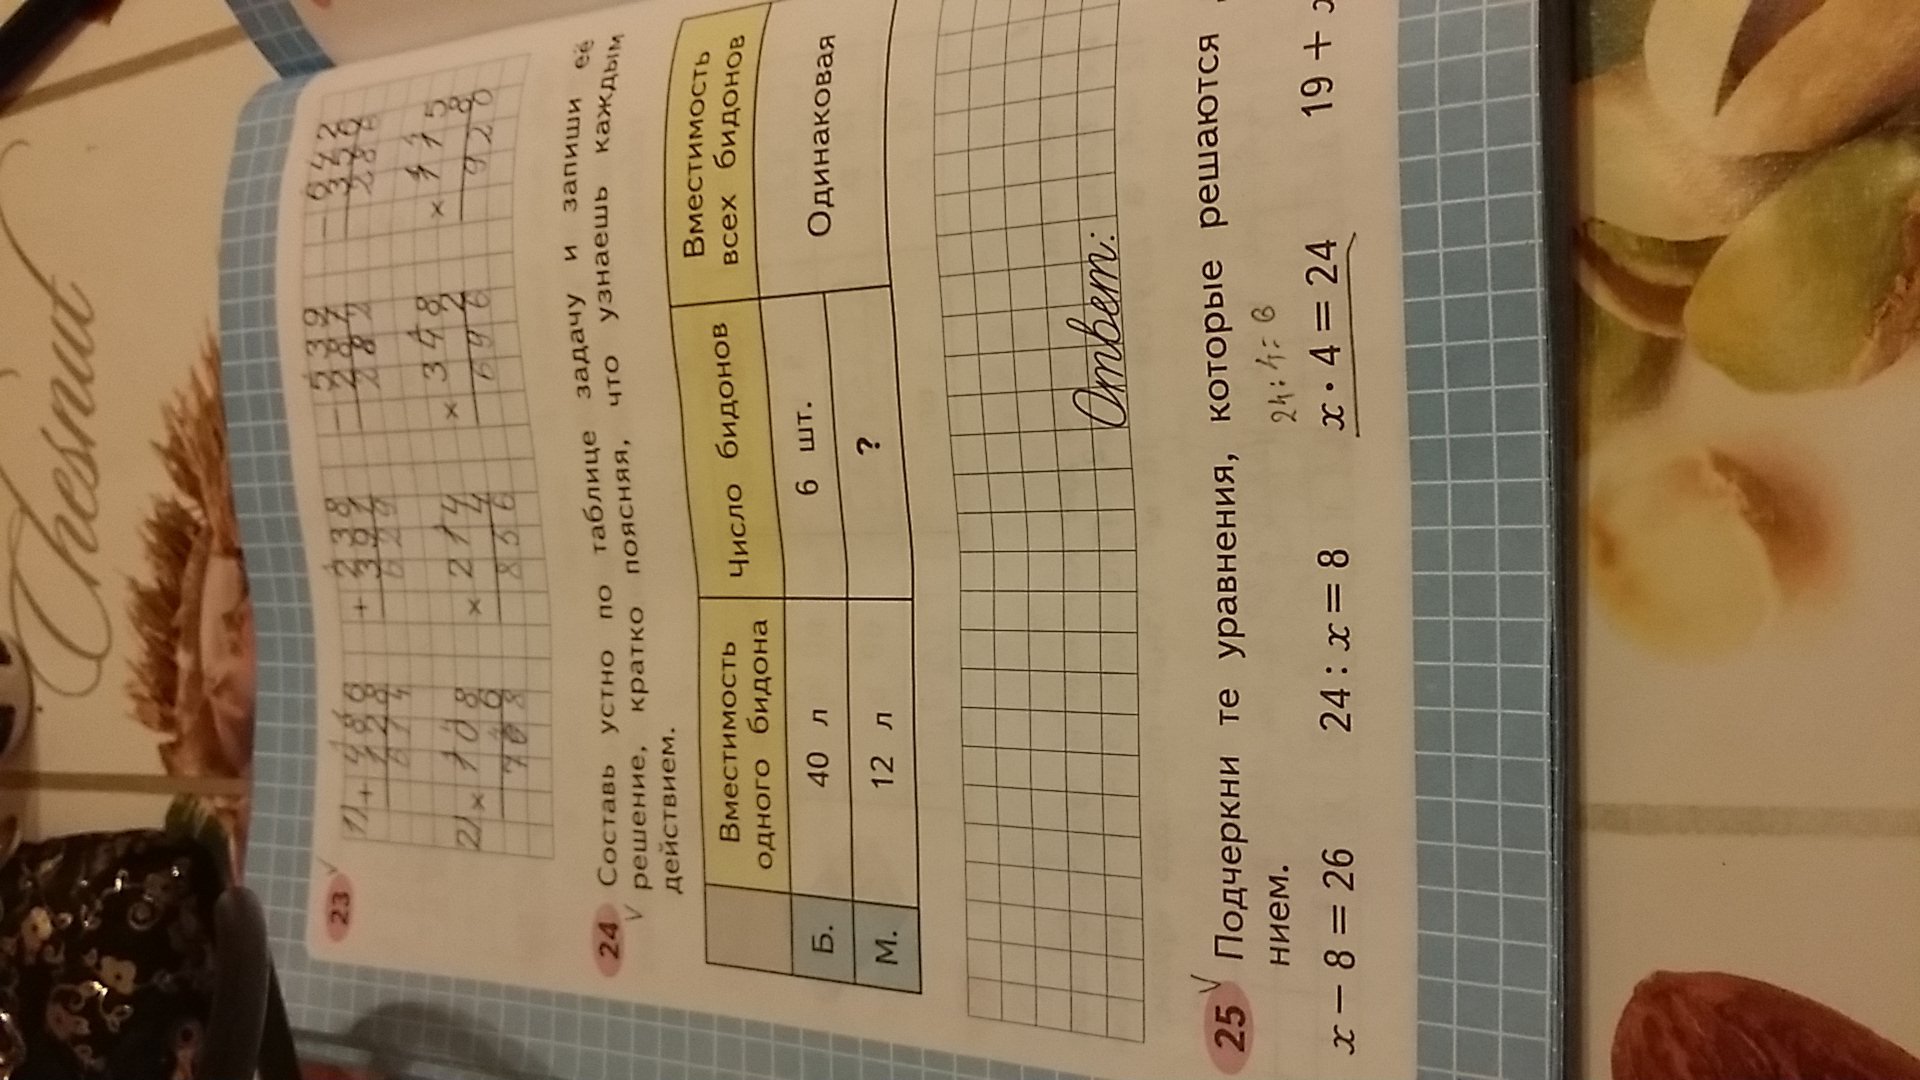 Chesnut
23
1) + 486 + 238 - 539 - 642
128 391 257 356
614 629 282 286
2) × 108 × 214 × 348 × 115
4 2 8
856 696 920
24 Составь устно по таблице задачу и запиши её
решение, кратко поясняя, что узнаешь каждым
действием.
Вместимость одного бидона Число бидонов Вместимость всех бидонов
Б. 40 л 6 шт. Одинаковая
М. 12 л ?
Ответ:
25 Подчеркни те уравнения, которые решаются
нием.
24 : 4 = 6
x − 8 = 26 24 : x = 8 x · 4 = 24 19 + x